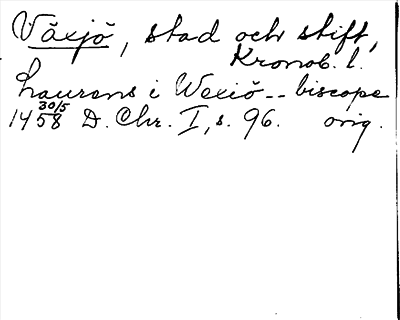 Växjö, stad och stift,
Kronob. l.
Laurens i Wexiö -- biscope
1458 30/5 D. Chr. I, s. 96. orig.